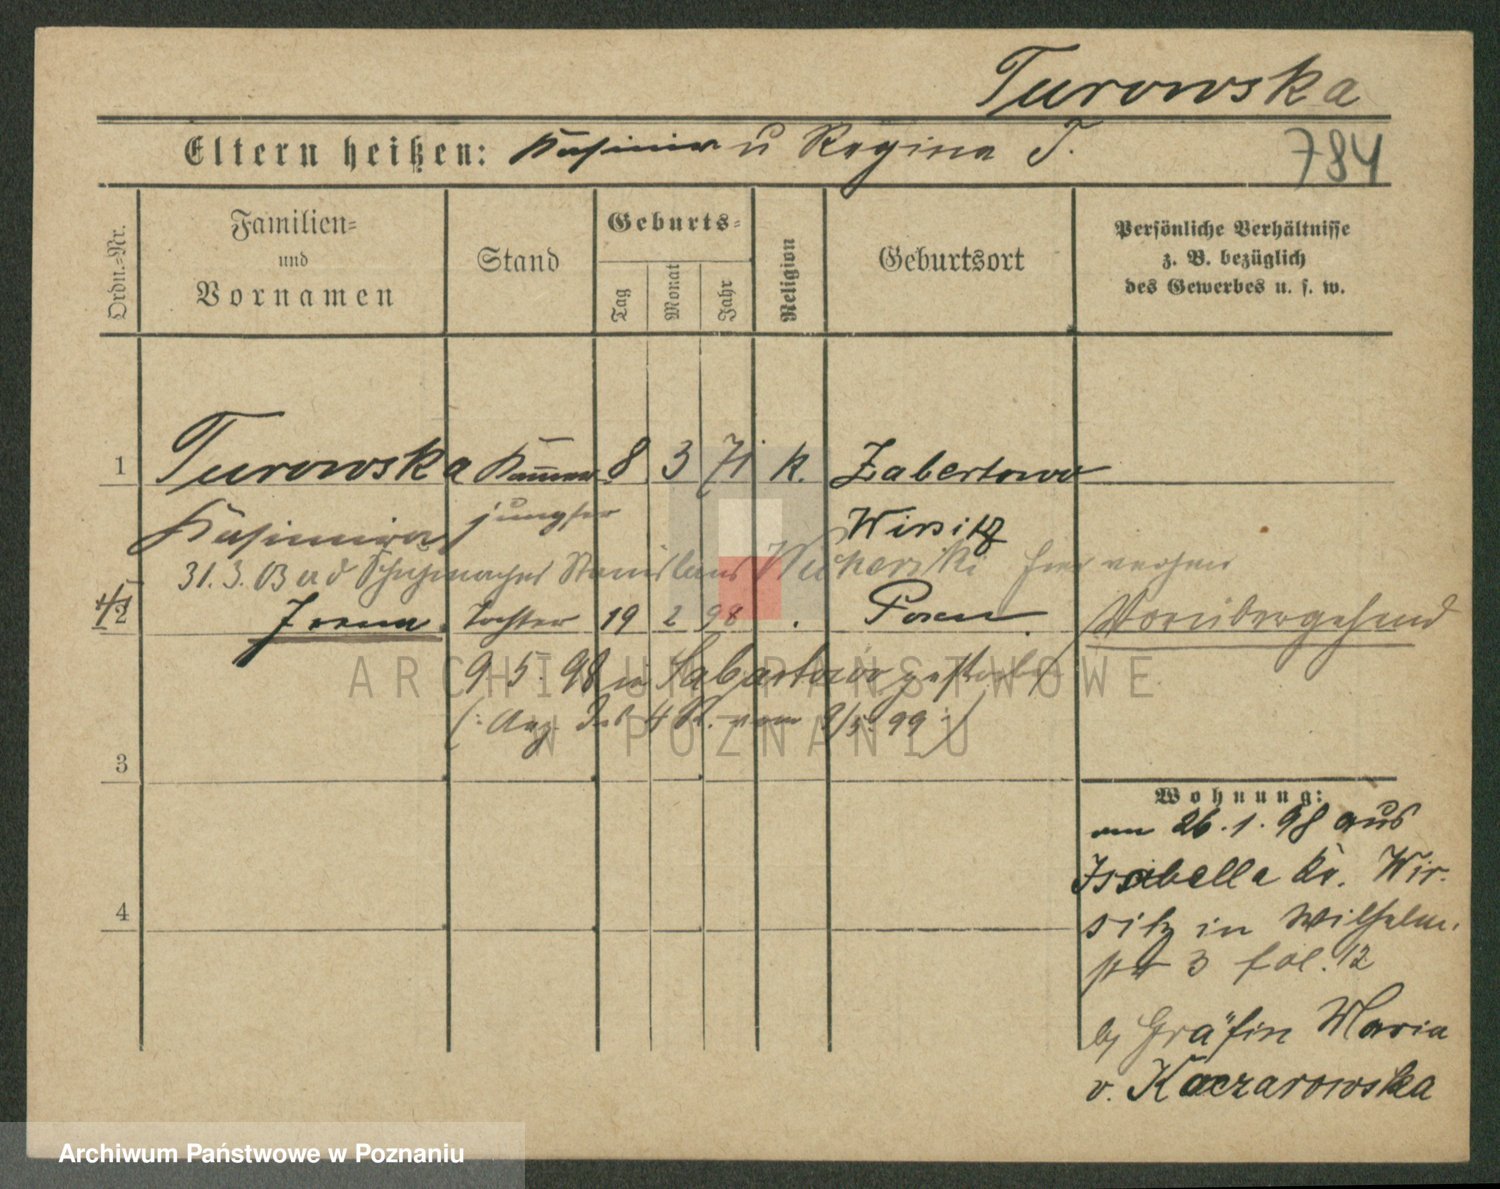 Turowska
Eltern heißen: Kasimir u Regina T.
784
Ordn.-Nr.
Familien-
und
Vornamen
Stand
Geburts-
Tag
Monat
Jahr
Religion
Geburtsort
Persönliche Verhältnisse
z. B. bezüglich
des Gewerbes u. s. w.
1 Turowska Kammer 8 3 71 k. Zabertowo
Kasimira jungfer Wirsitz
31.3.03 a d Schuhmacher Stanislaus hier
2 Irena Tochter 19 2 98 . Posen. Vorübergehend
9 5. 98 in Sabartowo gestorben
(: Anz. d. 4 R. vom 9/5. 99 :)
3
Wohnung:
am 26.1.98 aus
Isabella Kr. Wir-
4
sitz in Wilhelm-
str 3 fol. 12
by Gräfin Maria
v. Kaczarowska
ARCHIWUM PAŃSTWOWE
W POZNANIU
Archiwum Państwowe w Poznaniu